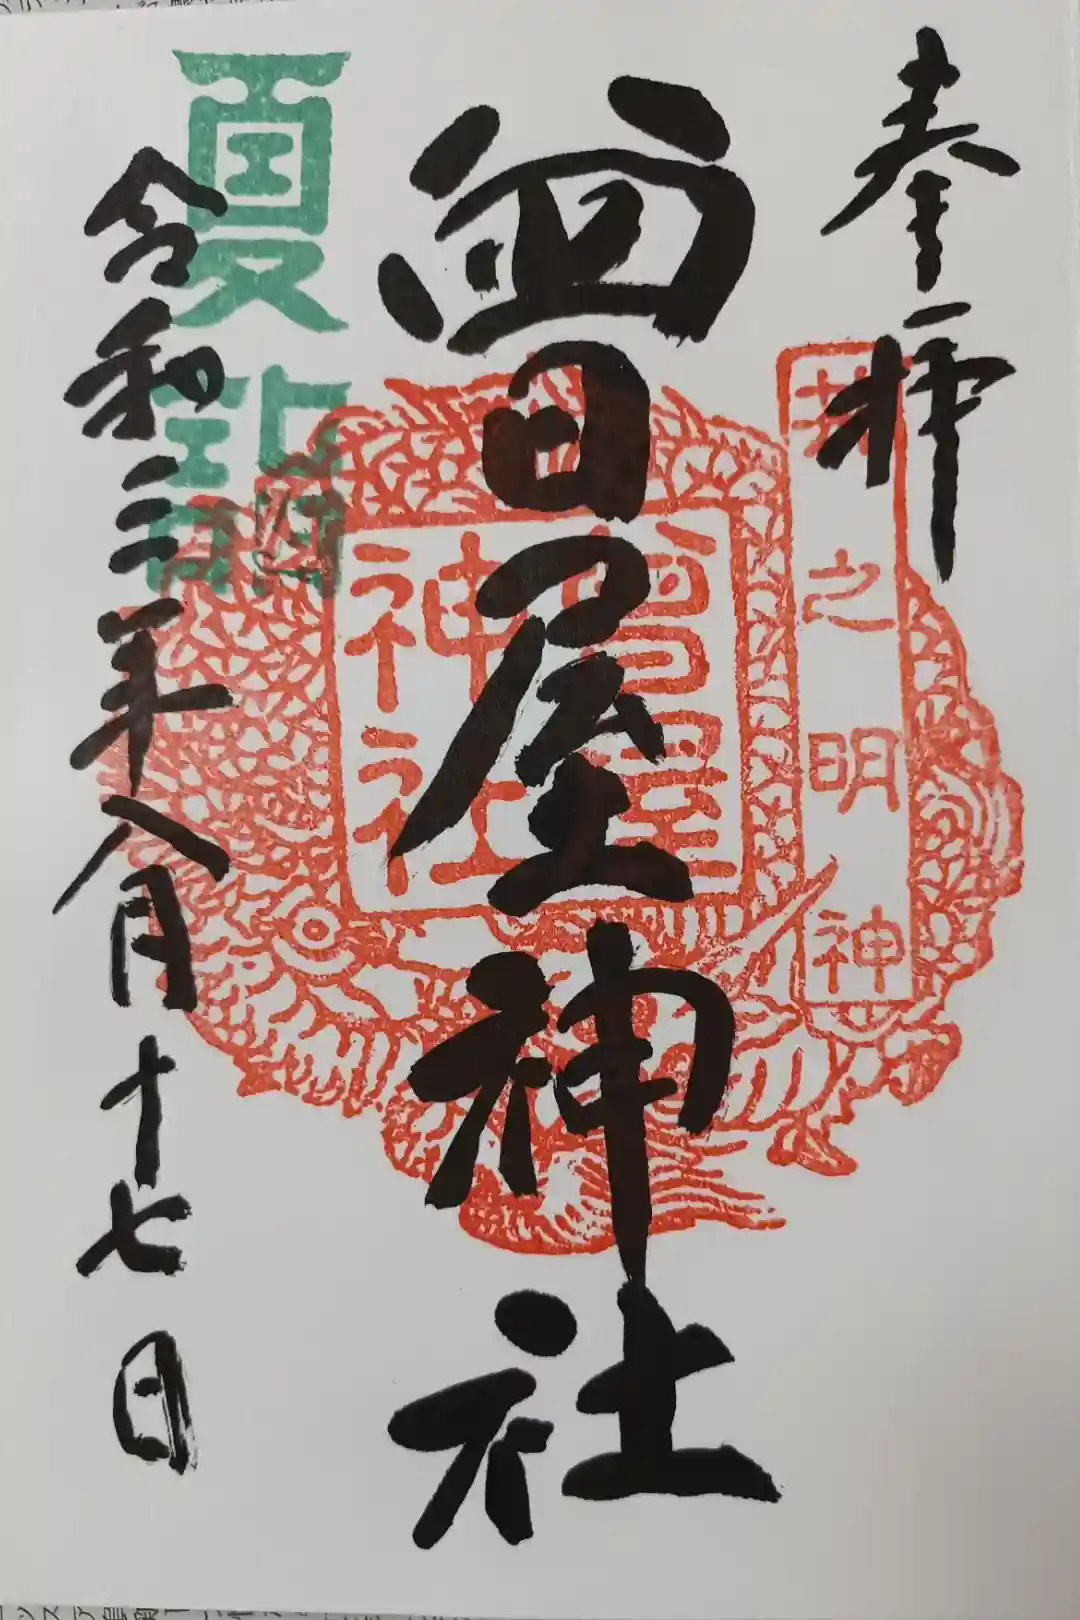 奉拝
井之明神
曾屋神社
曾屋
神社
夏詣
令和三年八月十七日